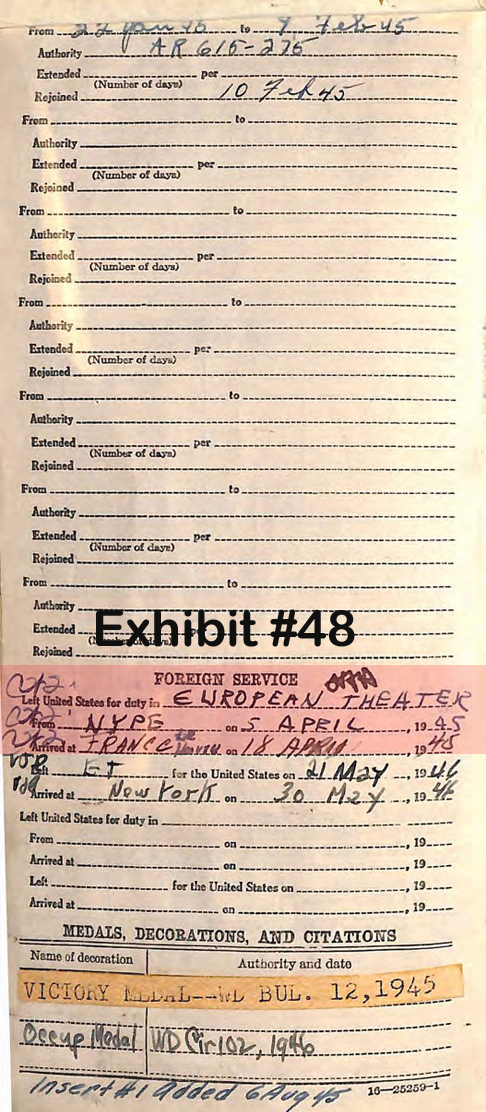 From 22 Jan 45 to 9 Feb 45
Authority AR 615-275
Extended per
(Number of days)
Rejoined 10 Feb 45
From to
Authority
Extended per
(Number of days)
Rejoined
From to
Authority
Extended per
(Number of days)
Rejoined
From to
Authority
Extended per
(Number of days)
Rejoined
From to
Authority
Extended per
(Number of days)
Rejoined
From to
Authority
Extended per
(Number of days)
Rejoined
From to
Authority
Exhibit #48
Extended per
Rejoined
FOREIGN SERVICE
Left United States for duty in EUROPEAN THEATER
From NYPE on 5 APRIL, 1945
Arrived at FRANCE on 18 APRIL, 1945
Left ET for the United States on 21 May, 1946
Arrived at New York on 30 May, 1946
Left United States for duty in
From on , 19
Arrived at on , 19
Left for the United States on , 19
Arrived at on , 19
MEDALS, DECORATIONS, AND CITATIONS
Name of decoration Authority and date
VICTORY MEDAL--WD BUL. 12,1945
Occup Medal WD Cir 102, 1946
Insert #1 Added 6 Aug 45 16—25259-1